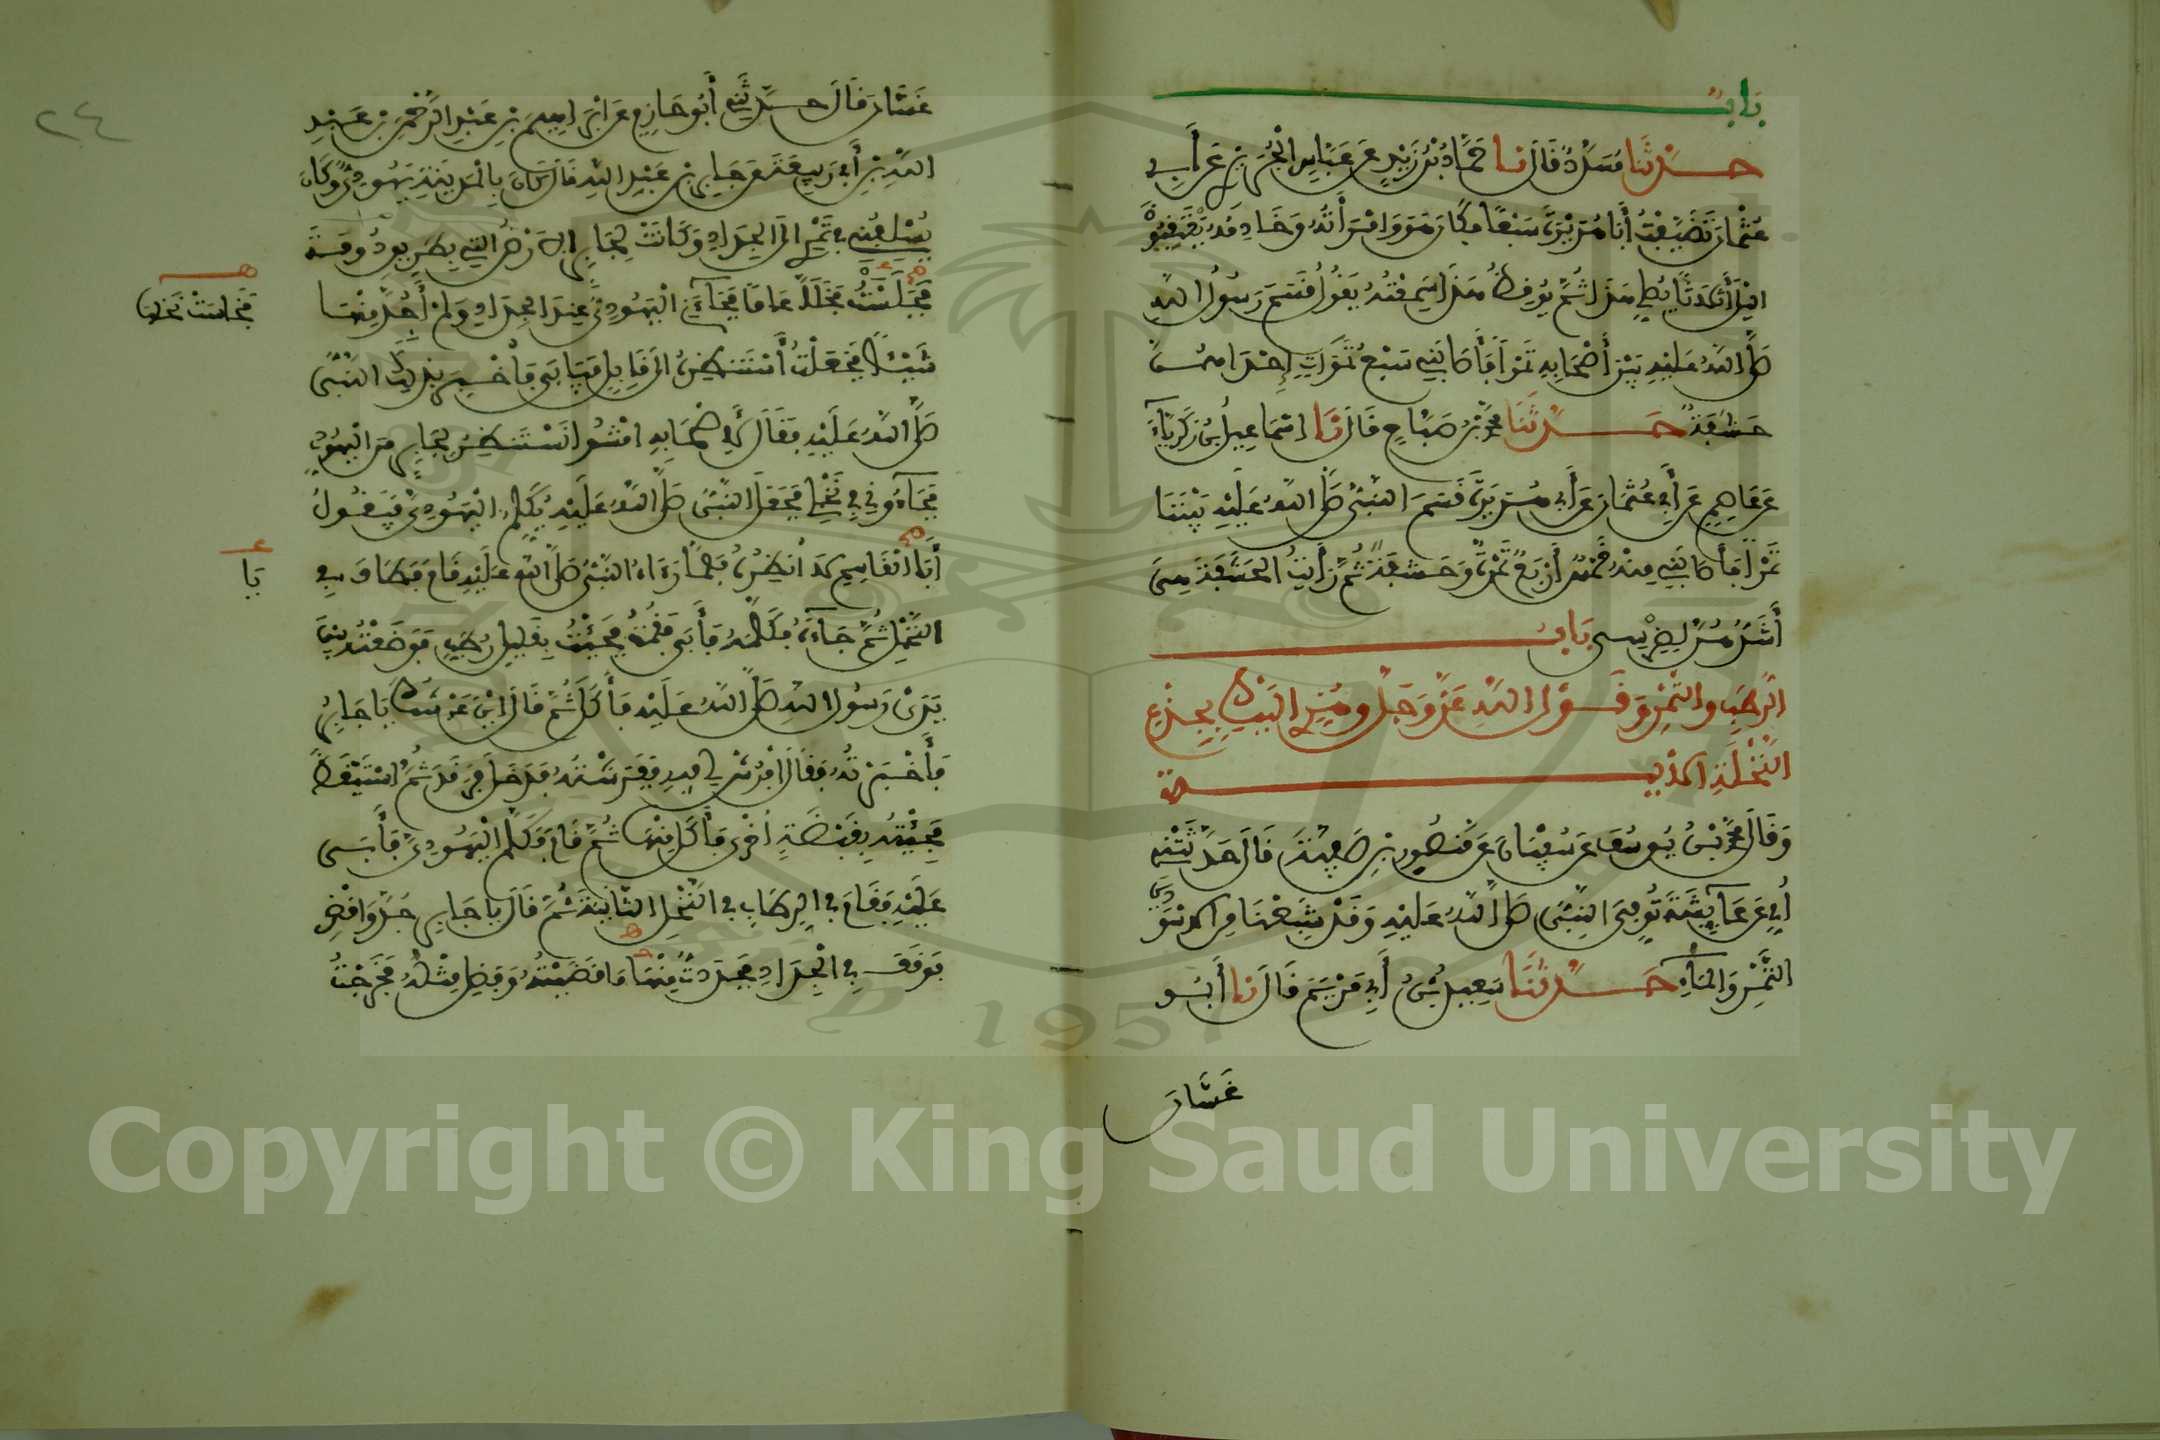 باب
حدثنا مسدد قال نا حماد بن زيد عن عباس الجريري عن أبي
عثمان تضيفت أبا هريرة سبعا فكان هو وامرأته وخادمه يعتقبون
الليل أثلاثا يصلي هذا ثم يوقظ هذا سمعته يقول قسم رسول الله
صلى الله عليه بين أصحابه تمرا فأصابني سبع تمرات إحداهن
حشفة حدثنا محمد بن صباح قال نا اسماعيل بن زكرياء
عن عاصم عن أبي عثمان عن أبي هريرة قسم النبي صلى الله عليه بيننا
تمرا فأصابني منه خمس أربع تمرة وحشفة ثم رأيت الحشفة هي
أشدهن لضرسي باب
الرطب والتمر وقول الله عز وجل وهزي إليك بجذع
النخلة الآية
وقال محمد بن يوسف عن سفيان عن منصور بن صفية قال حدثتني
أمي عن عائشة توفي النبي صلى الله عليه وقد شبعنا من الأسودين
التمر والماء حدثنا سعيد بن أبي مريم قال نا أبو
غسان
٢٤
غسان قال حدثني أبو حازم عن ابراهيم بن عبد الرحمن بن عبد
الله بن أبي ربيعة عن جابر بن عبد الله قال كان بالمدينة يهودي وكان
يسلفني في تمري الى الجداد وكانت لجابر الارض التي بطريق رومة
فجلست فخلا عاما فجاءني اليهودي عند الجداد ولم أجد منها
فخاست نخلها
شيئا فجعلت أستنظره الى قابل فيابى فأخبر بذلك النبي
صلى الله عليه فقال لأصحابه امشوا نستنظر لجابر من اليهودي
فجاءوني في نخلي فجعل النبي صلى الله عليه يكلم اليهودي فيقول
أبا القاسم لا أنظره فلما رءاه النبي صلى الله عليه قام فطاف في
يا
النخل ثم جاءه فكلمه فأبى فقمت فجئت بقليل رطب فوضعته بين
يدي رسول الله صلى الله عليه فأكل ثم قال اين عرشك يا جابر
فأخبرته فقال افرش لي فيه ففرشته فدخل فرقد ثم استيقظ
فجئته بقبضة أخرى فأكل منها ثم قام فكلم اليهودي فأبى
عليه فقام في الرطاب في النخل الثانية ثم قال يا جابر جد واقض
فوقف في الجداد فجددت منها ما قضيته وفضل مثله فخرجت